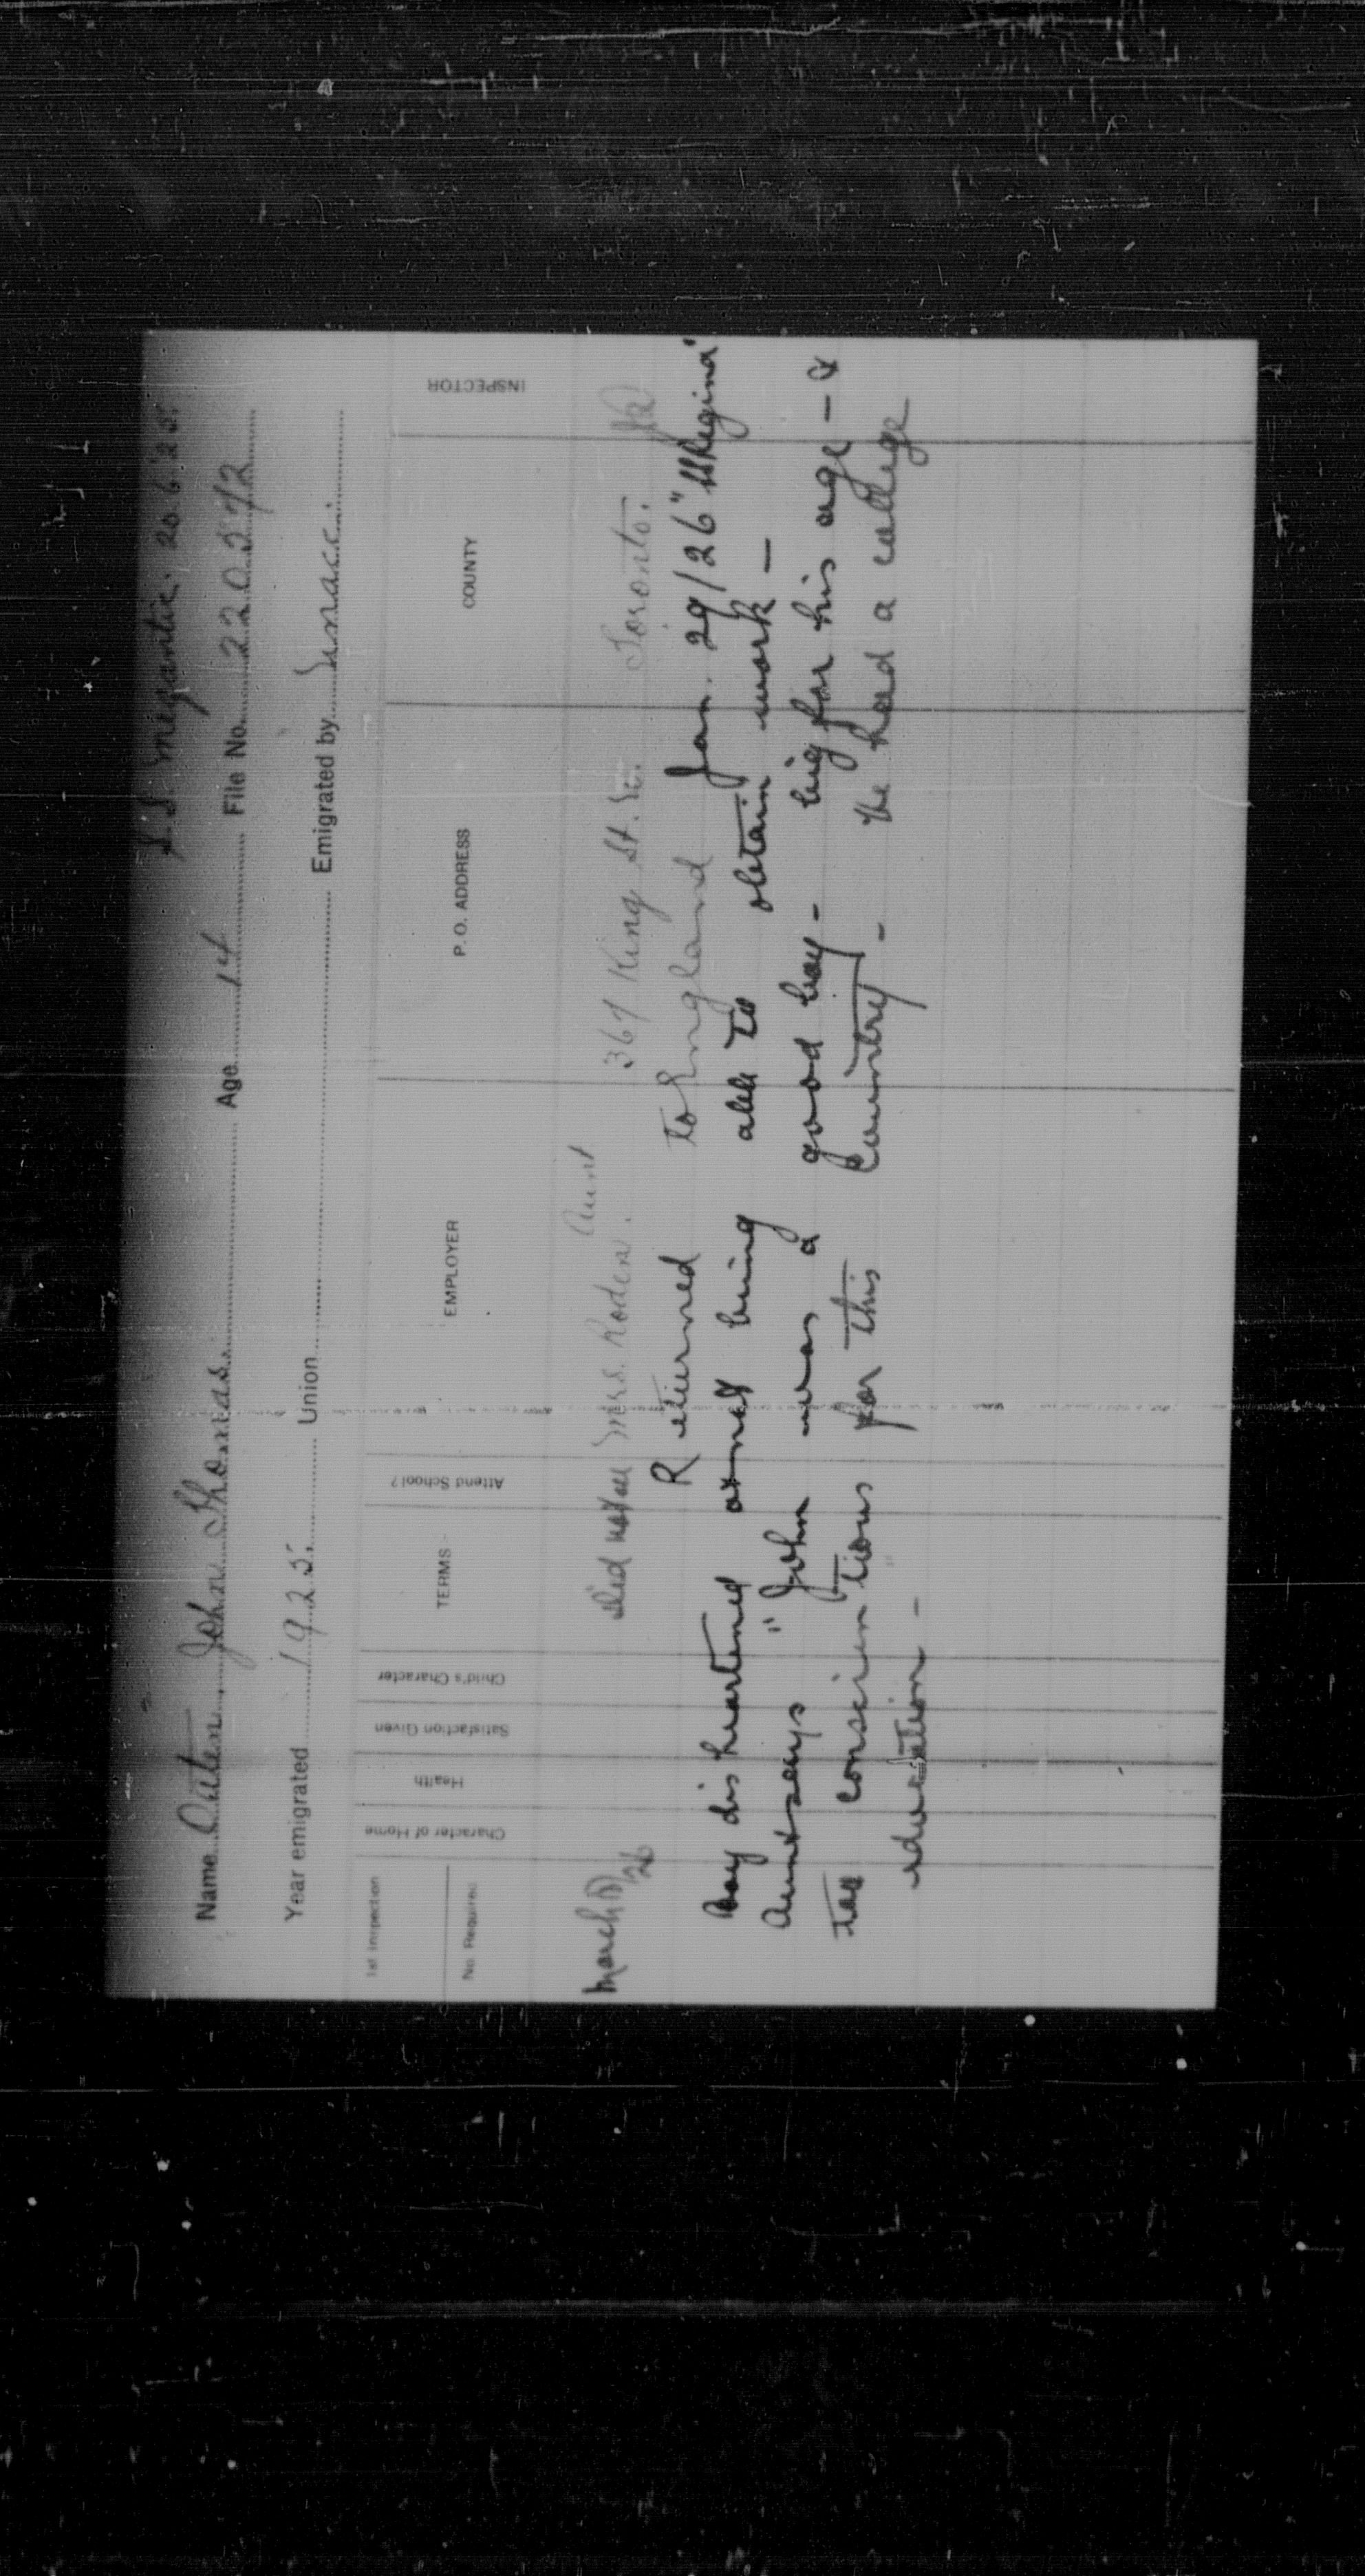 S.S. Megantic. 20.6.25.
Name Outen, John Thomas. Age 14 File No. 220372
Year emigrated 1925. Union Emigrated by
1st Inspection
No. Required
Character of Home
Health
Satisfaction Given
Child's Character
TERMS
Attend School?
EMPLOYER
P. O. ADDRESS
COUNTY
INSPECTOR
Aunt
March 8/26 Did not see Mrs. Roden. 367 King St. E. Toronto.
Returned to England Jan. 29/26 "SS Regina"
Boy dis heartened at not being able to obtain work —
Aunt says "John was a good boy - big for his age - &
too conscientious for this Country - He had a college
education -